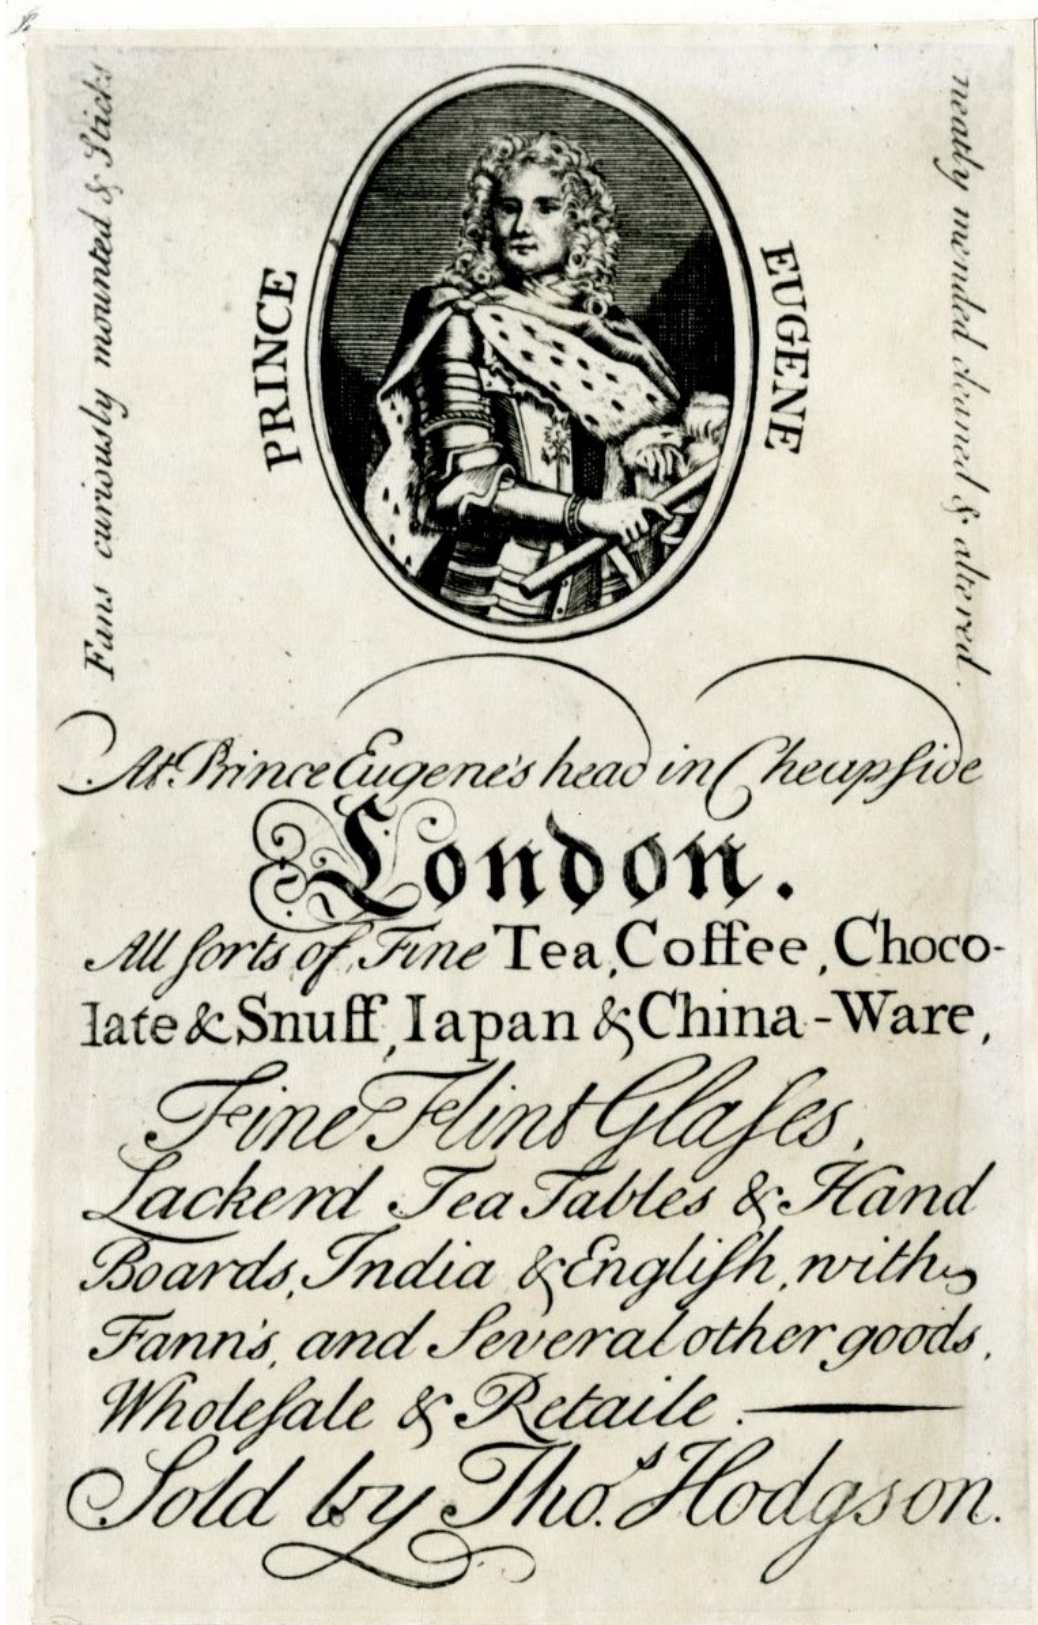 Fans curiously mounted & Sticks
neatly mended cleaned & altered.
PRINCE
EUGENE
At Prince Eugene's head in Cheapſide
London.
All ſorts of Fine Tea, Coffee, Choco-
late & Snuff, Iapan & China-Ware,
Fine Flint Glaſes,
Lackerd Tea Tables & Hand
Boards, India & Engliſh, with
Fann's, and Several other goods,
Wholeſale & Retaile.
Sold by Tho.s Hodgson.